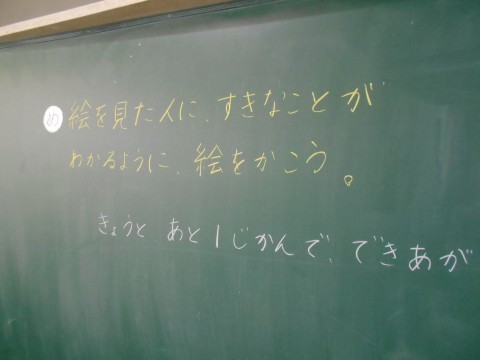 め 絵を見た人に、すきなことが
わかるように、絵をかこう。
きょうと あと1じかんで、できあが